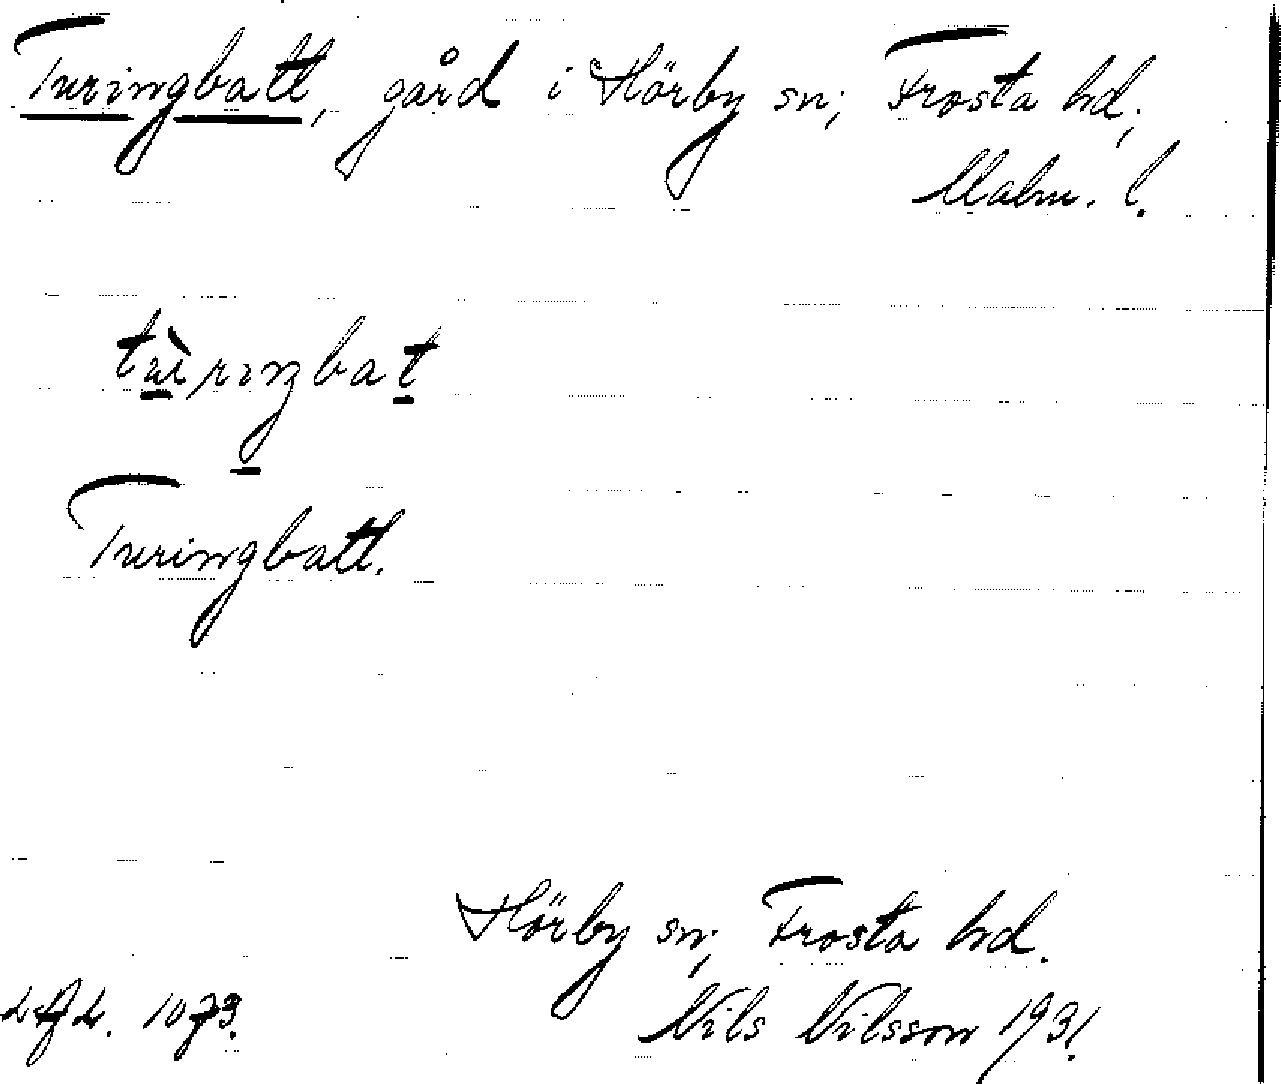 Turingbatt, gård i Hörby sn; Frosta hd;
Malm. l.
tù̱rıŋbat̲
Turingbatt.
Hörby sn; Frosta hd.
1073. Nils Nilsson 1931